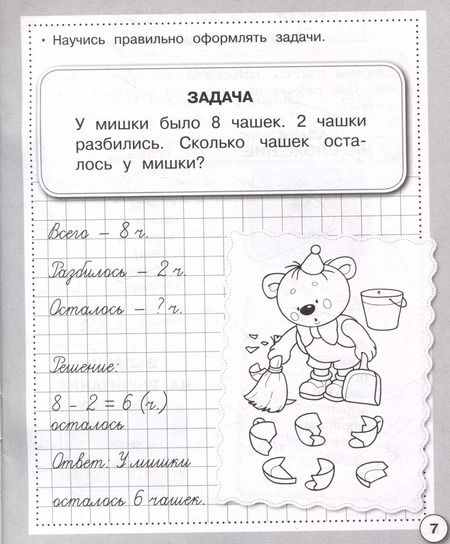 • Научись правильно оформлять задачи.
ЗАДАЧА
У мишки было 8 чашек. 2 чашки
разбились. Сколько чашек оста-
лось у мишки?
Всего – 8 ч.
Разбилось – 2 ч.
Осталось – ? ч.
Решение:
8 - 2 = 6 (ч.)
осталось
Ответ: У мишки
осталось 6 чашек.
7